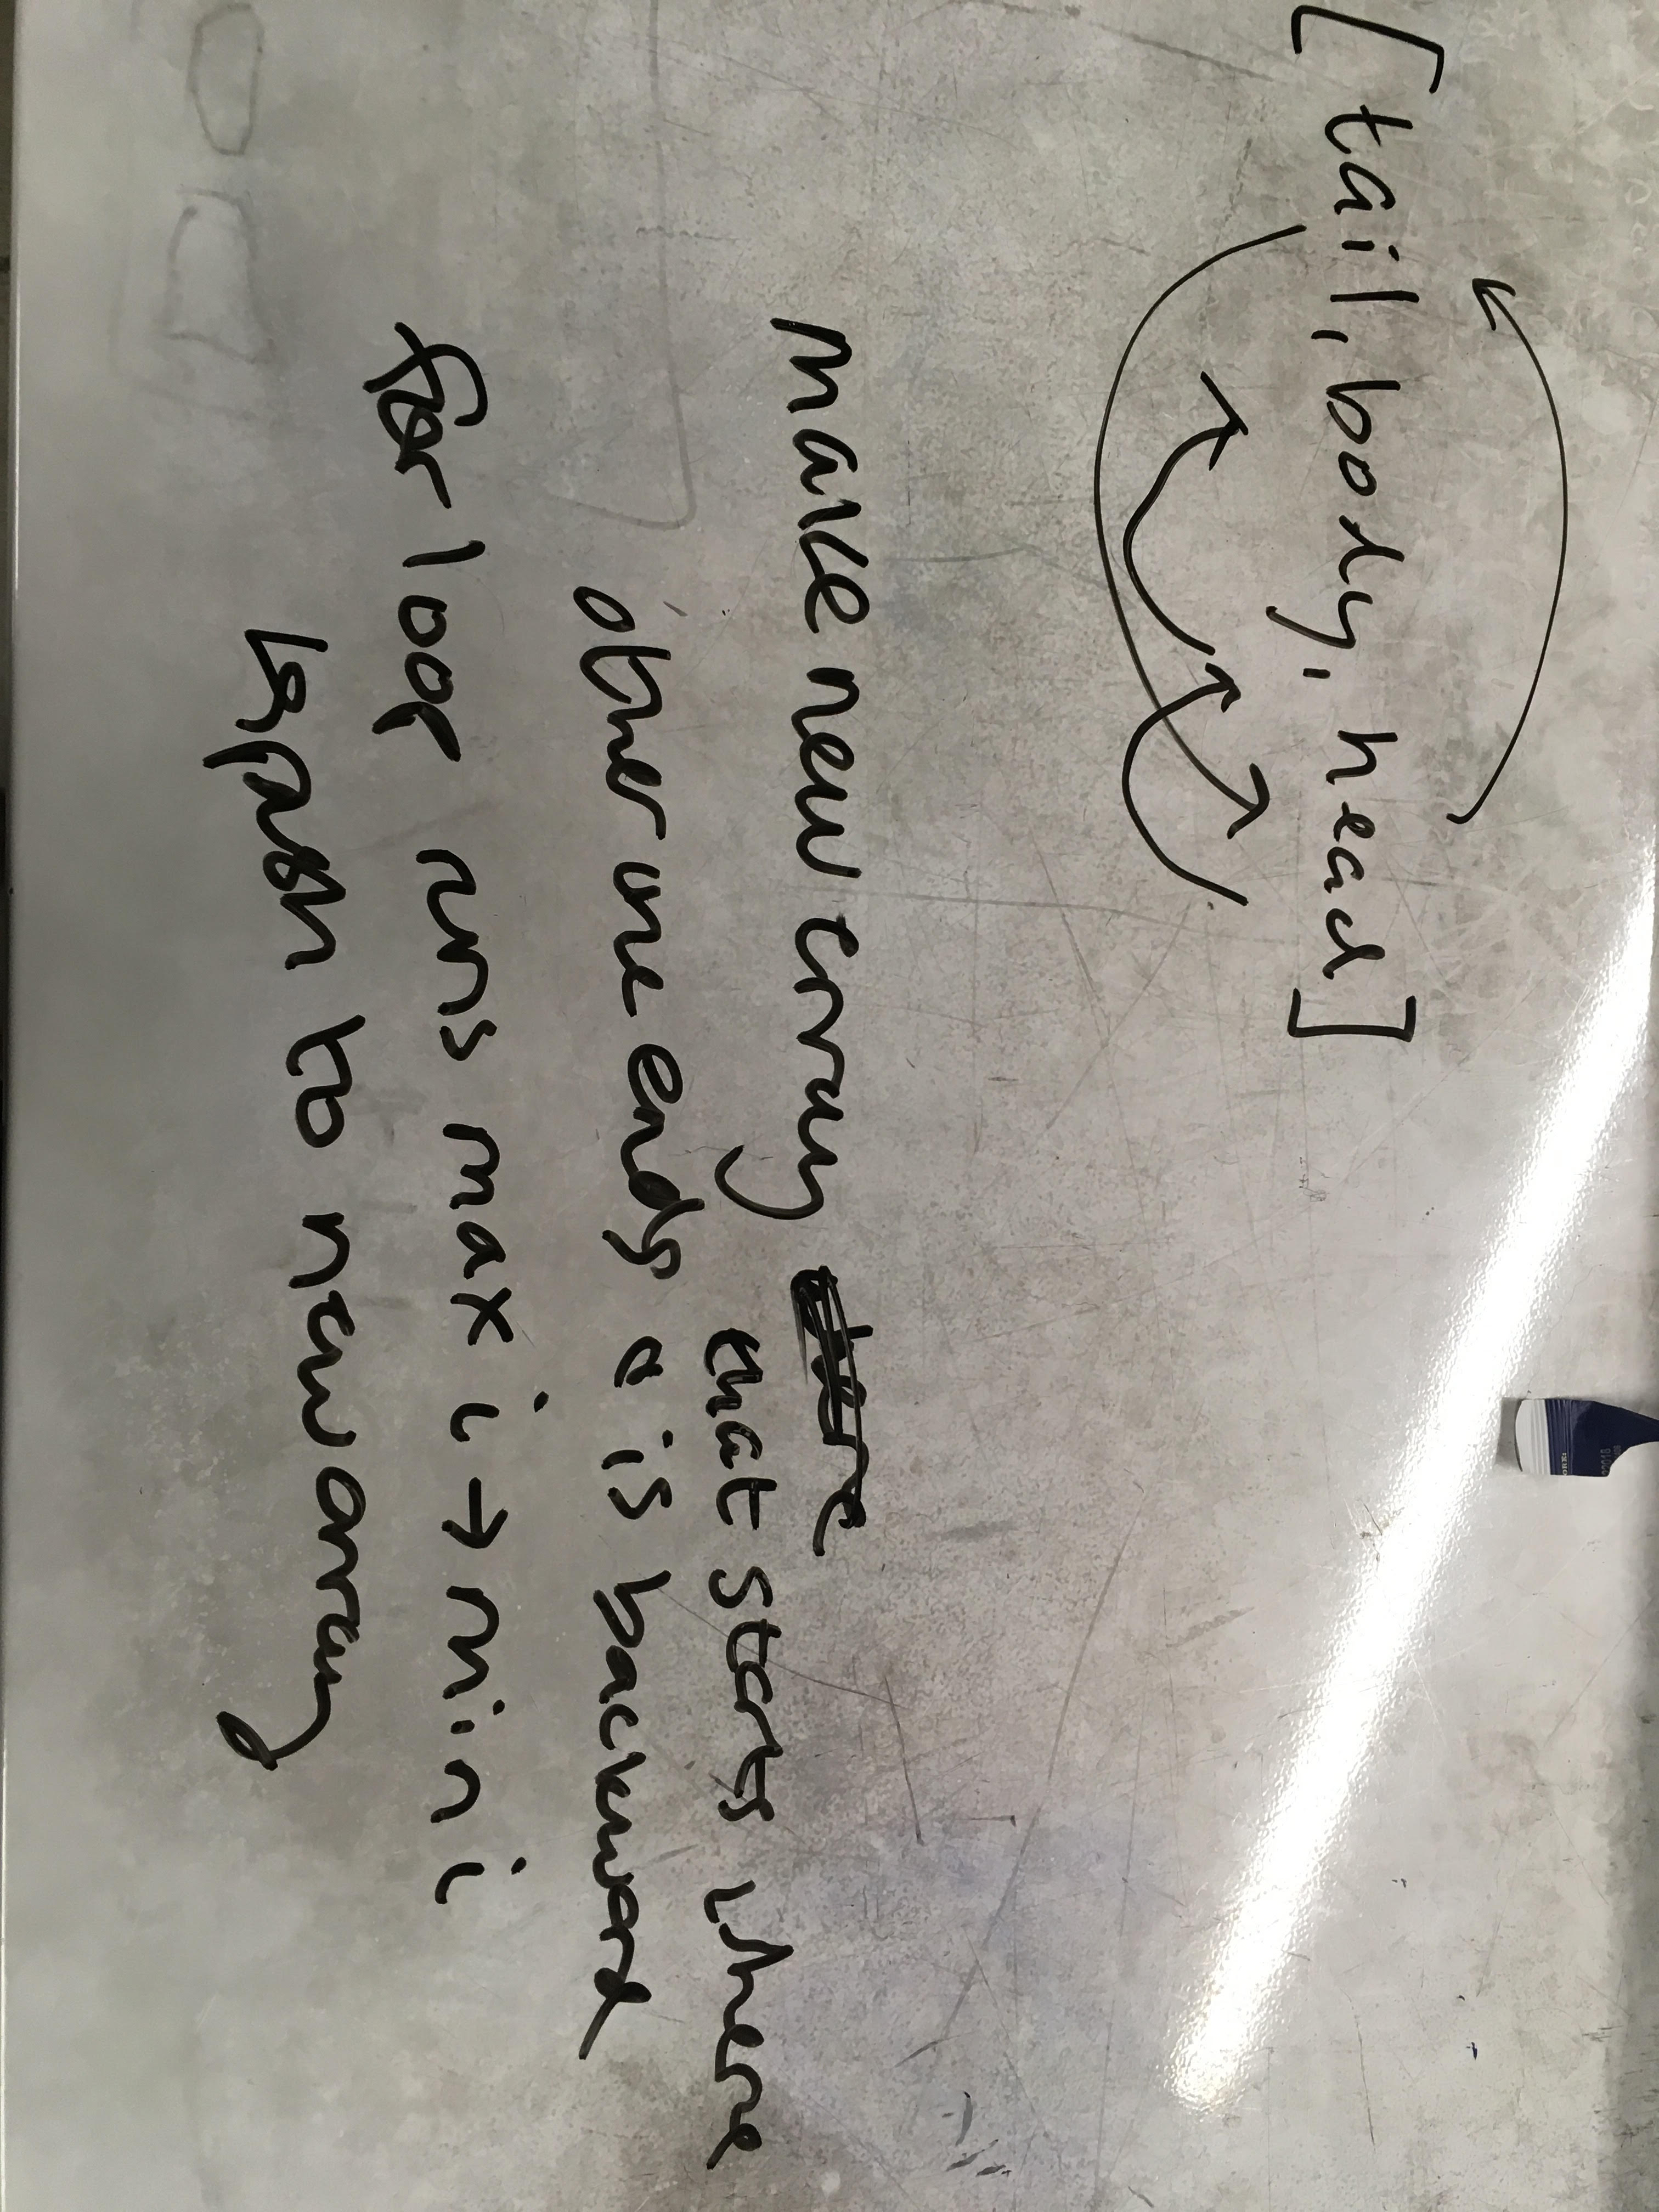 [tail, body, head]
make new array
that starts where
other one ends & is backward
for loop runs max i → min i
↳ push to new array